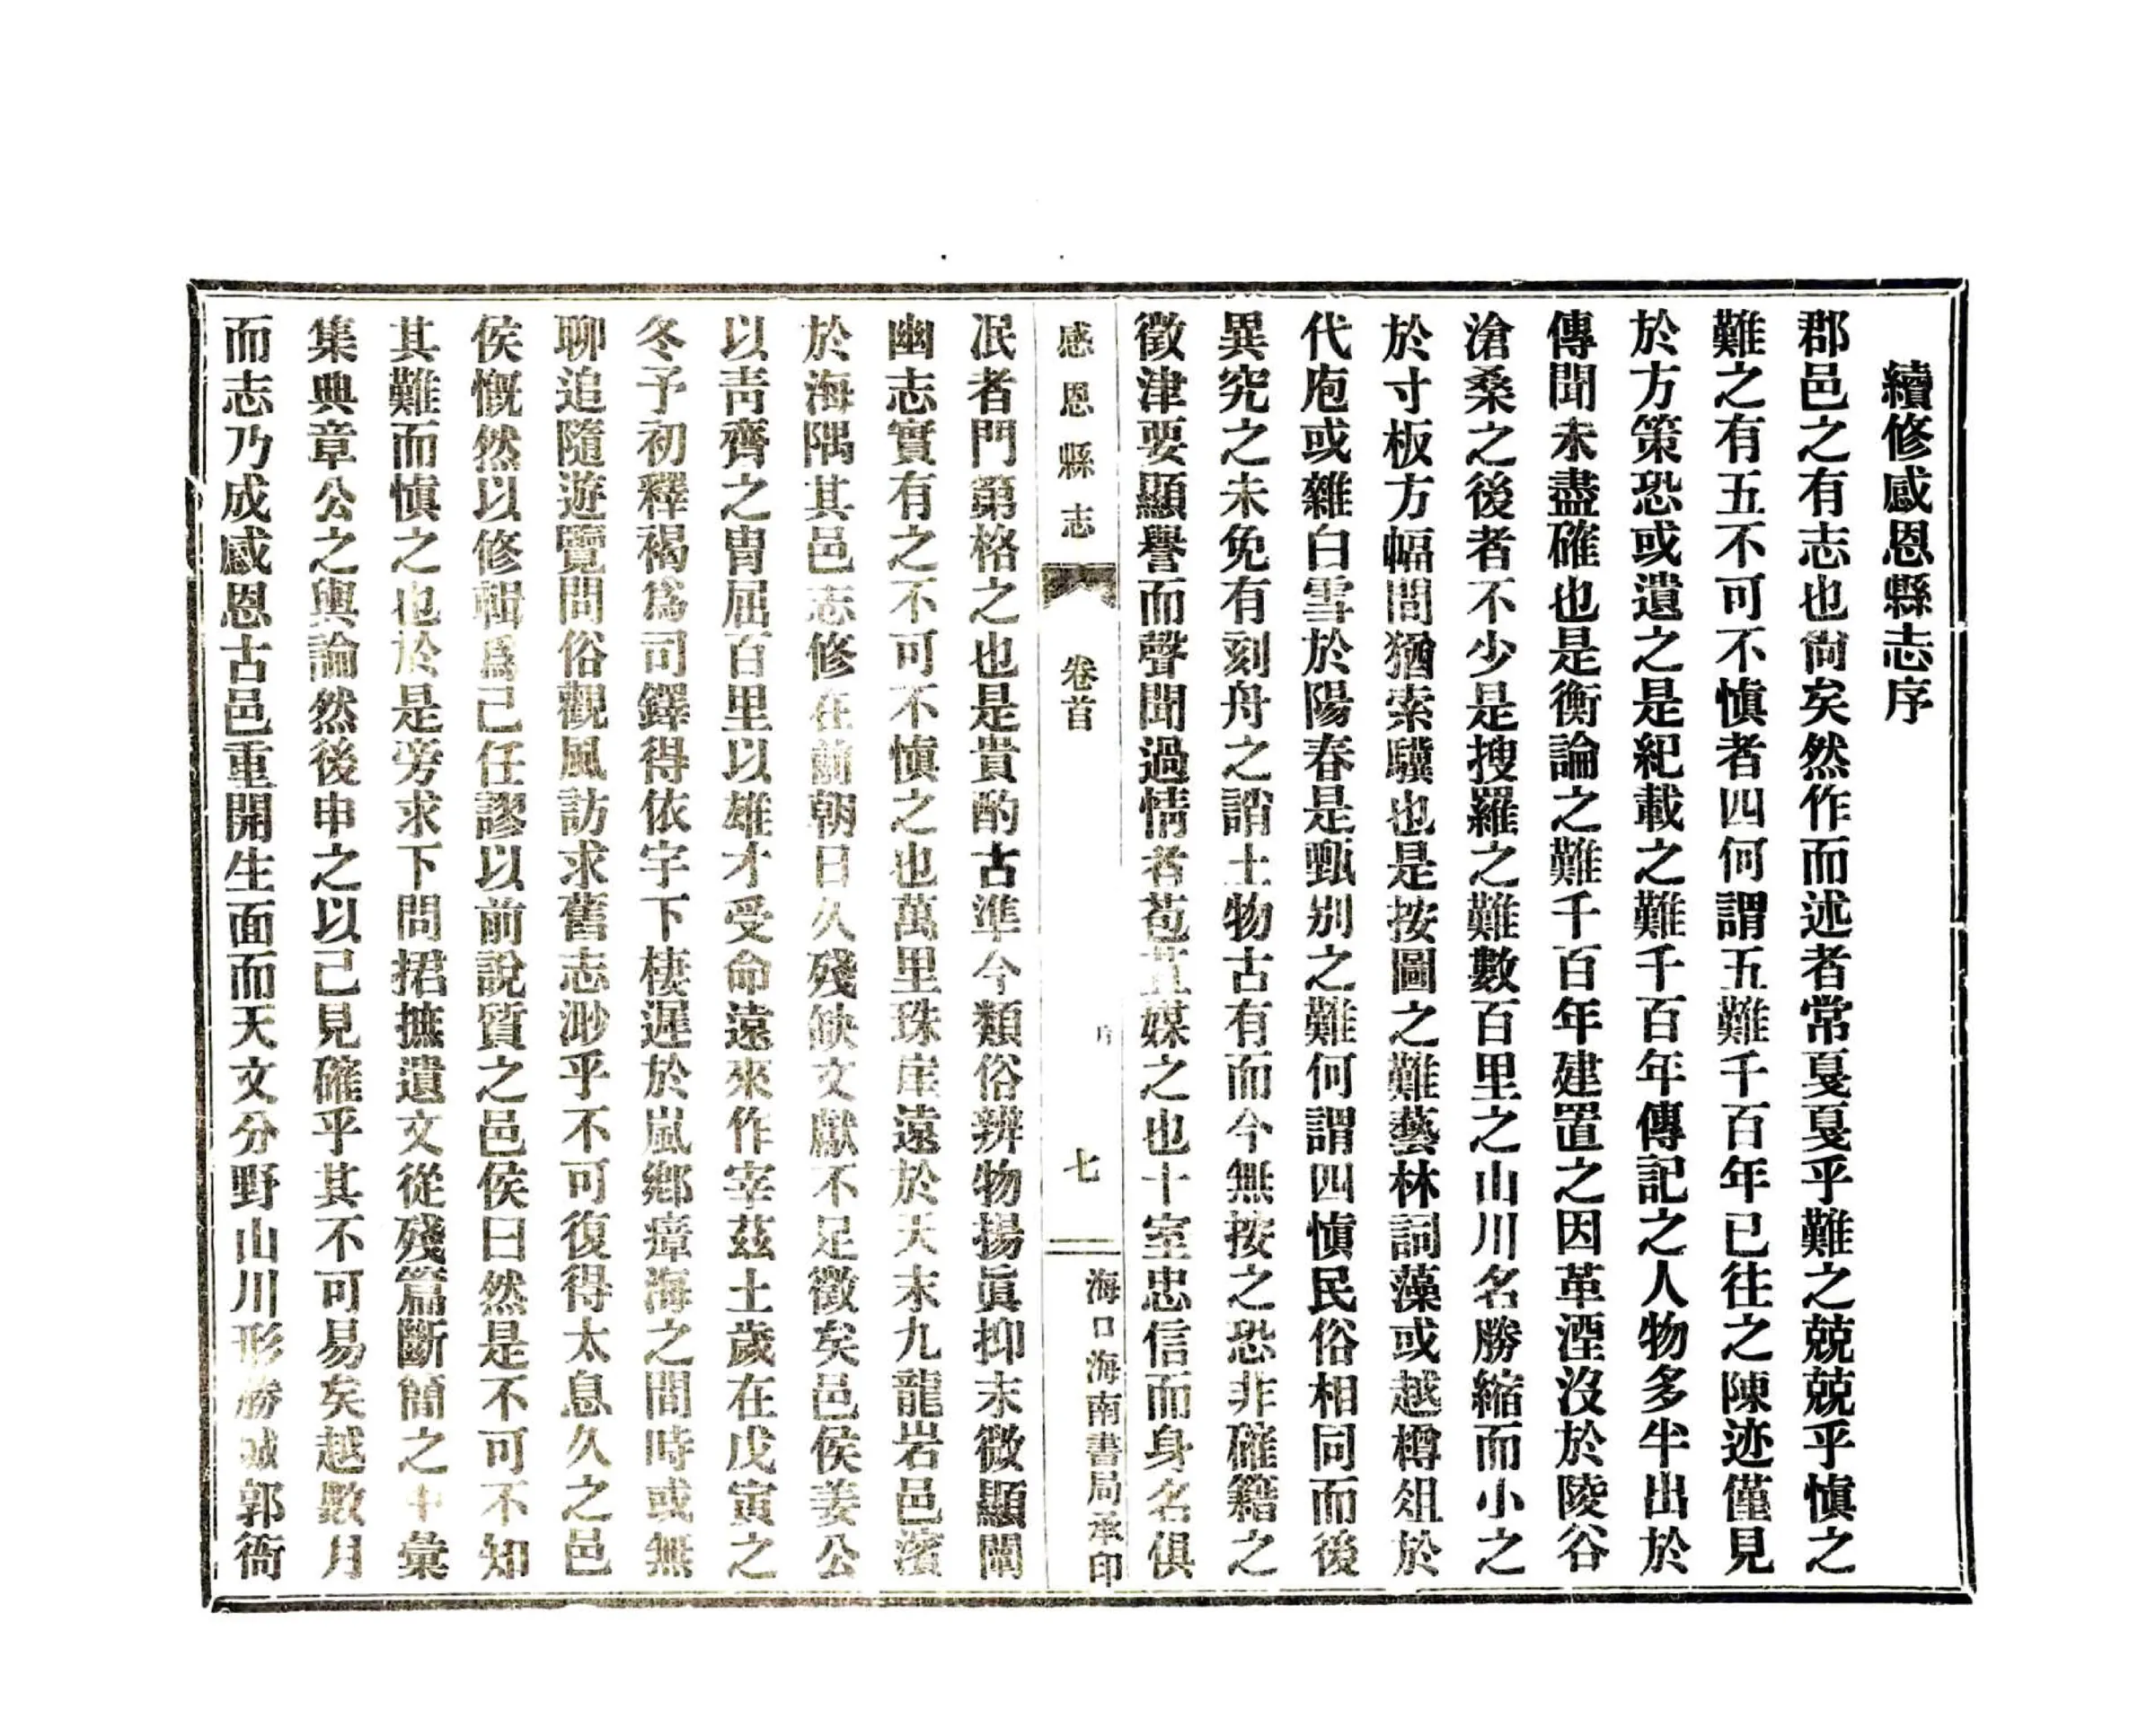 續修感恩縣志序
郡邑之有志也尙矣然作而述者常戛戛乎難之兢兢乎愼之
難之有五不可不愼者四何謂五難千百年已往之陳迹僅見
於方策恐或遺之是紀載之難千百年傳記之人物多半出於
傳聞未盡確也是衡論之難千百年建置之因革湮沒於陵谷
滄桑之後者不少是搜羅之難數百里之山川名勝縮而小之
於寸板方幅間猶索驥也是按圖之難藝林詞藻或越樽俎於
代庖或雜白雪於陽春是甄別之難何謂四愼民俗相同而後
異究之未免有刻舟之誚土物古有而今無按之恐非確籍之
徵津要顯譽而聲聞過情者苞苴媒之也十室忠信而身名俱
感恩縣志
卷首
序
七
海口海南書局承印
泯者門第格之也是貴酌古準今類俗辨物揚眞抑末微顯闡
幽志實有之不可不愼之也萬里珠崖遠於天末九龍岩邑濱
於海隅其邑志修在前朝日久殘缺文獻不足徵矣邑侯姜公
以靑齊之胄屈百里以雄才受命遠來作宰茲土歲在戊寅之
冬予初釋褐爲司鐸得依宇下棲遲於嵐鄕瘴海之間時或無
聊追隨遊覽問俗觀風訪求舊志渺乎不可復得太息久之邑
侯慨然以修輯爲己任謬以前說質之邑侯曰然是不可不知
其難而愼之也於是旁求下問捃摭遺文從殘篇斷簡之中彙
集典章公之輿論然後申之以己見確乎其不可易矣越數月
而志乃成感恩古邑重開生面而天文分野山川形勝城郭衙